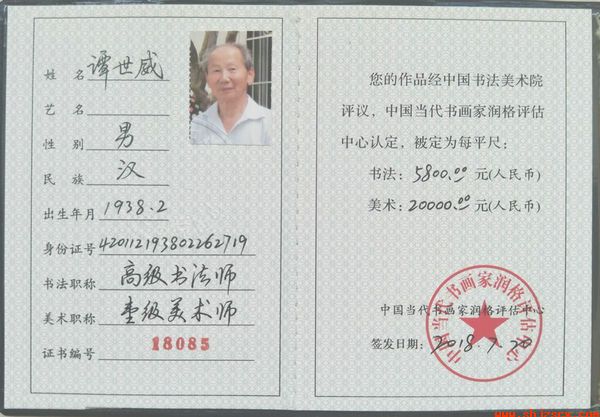 姓名 谭世威
艺名
性别 男
民族 汉
出生年月 1938.2
身份证号 420112193802262719
书法职称 高级书法师
美术职称 壹级美术师
证书编号 18085
您的作品经中国书法美术院
评议，中国当代书画家润格评估
中心认定，被定为每平尺：
书法：5800.00 元(人民币)
美术：20000.00 元(人民币)
中国当代书画家润格评估中心
签发日期：2018.7.20
中国当代书画家润格评估中心